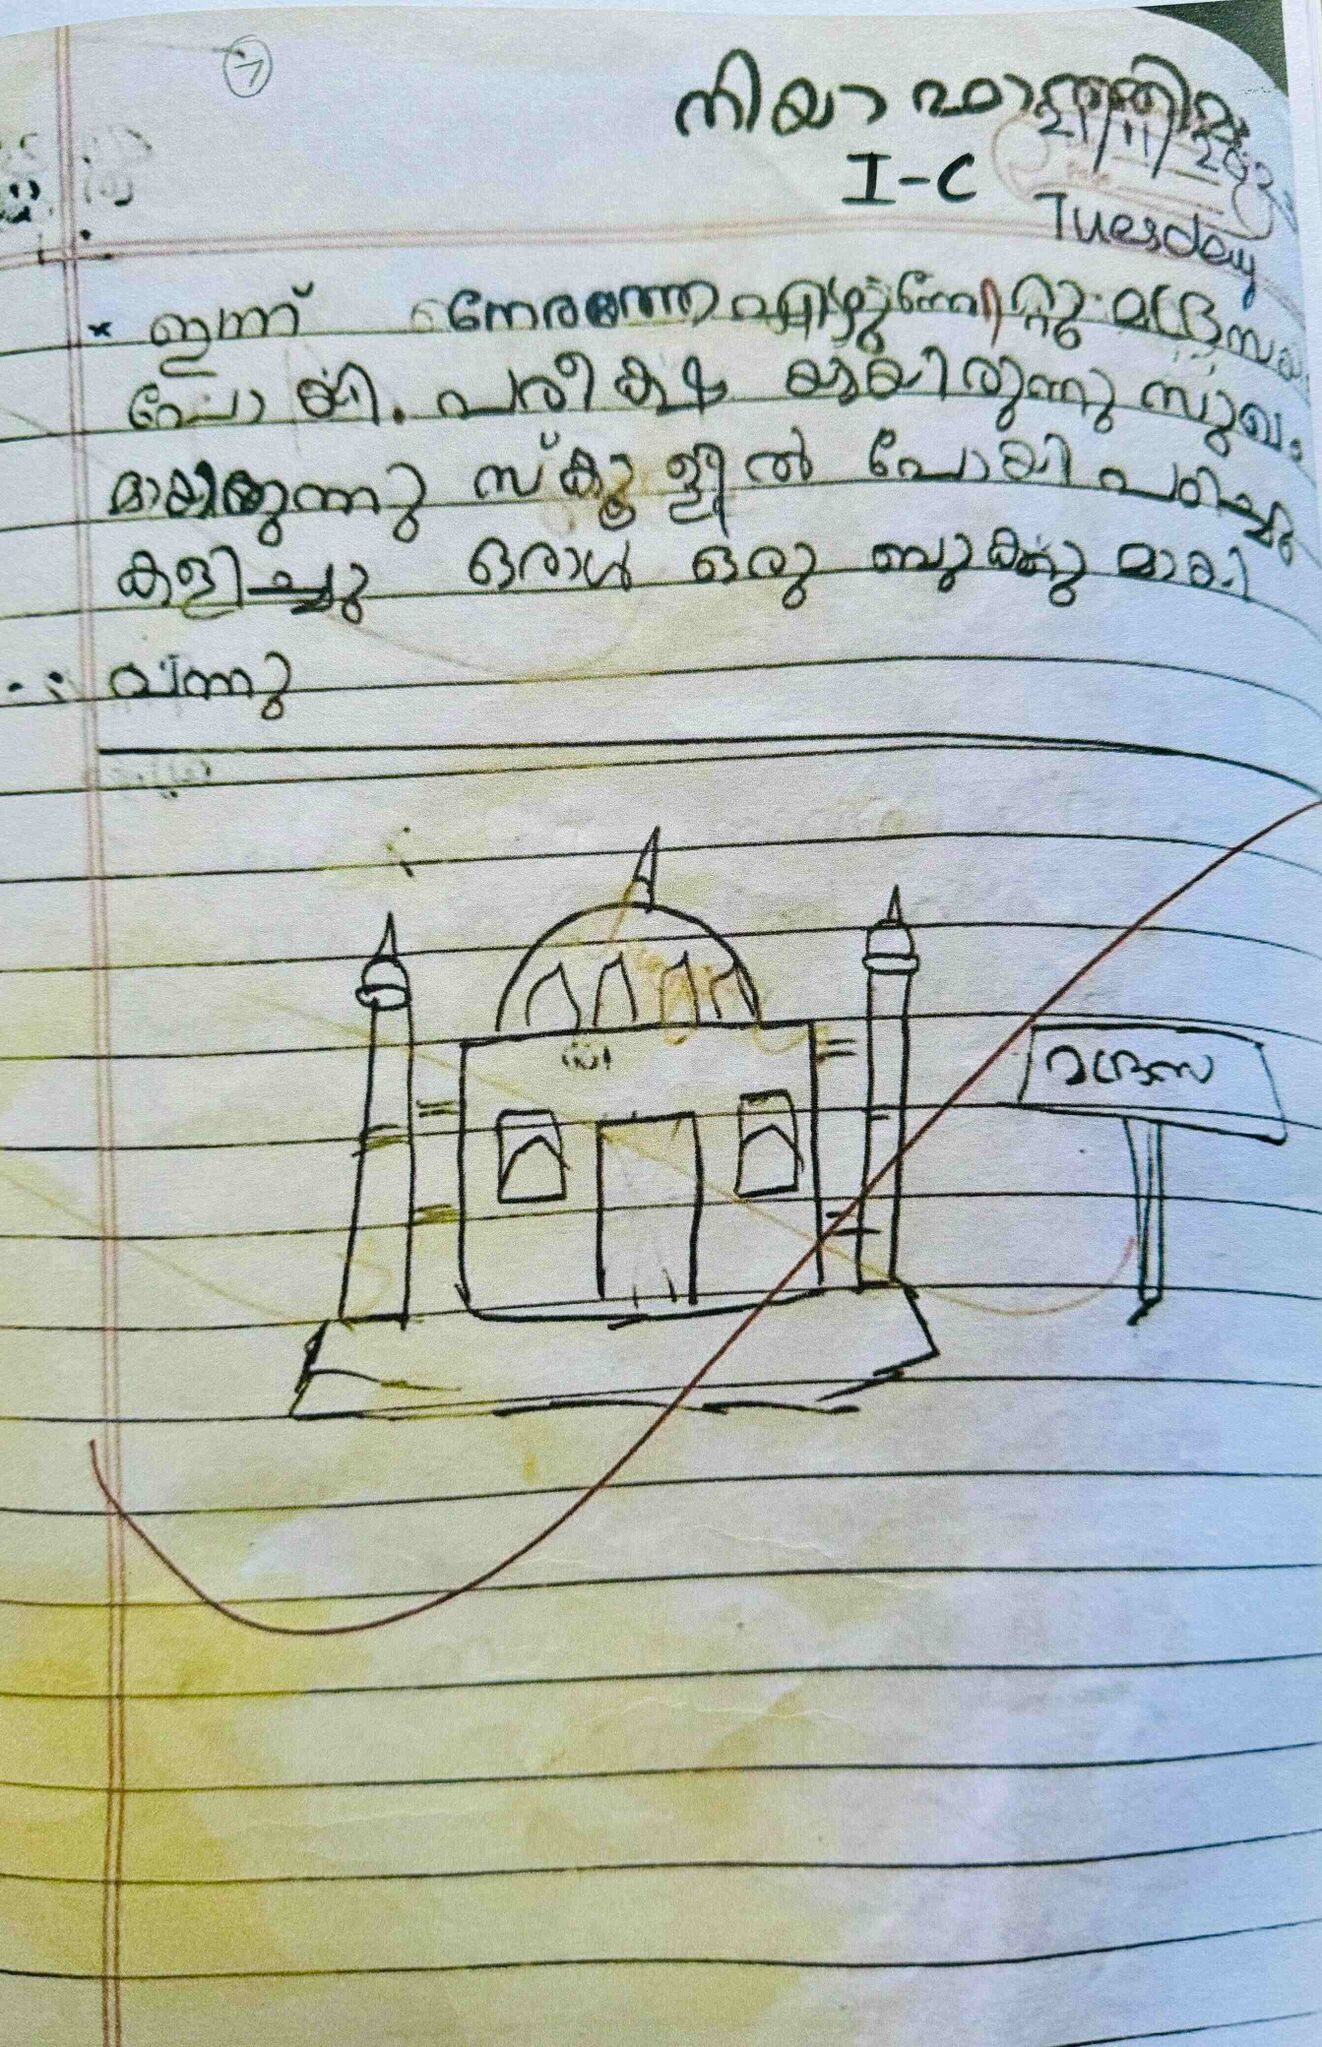 7
നിയാ ഫാത്തിമ
21/11/2023
I-C
Tuesday
* ഇന്ന് നേരത്തെ എഴുന്നേറ്റു മദ്രസയ
പോയി. പരീക്ഷ ആയിരുന്നു സുഖ.
മായിരുന്നു സ്കൂളിൽ പോയി പഠിച്ചു
കളിച്ചു ഒരാൾ ഒരു ബുക്കു മായി
വന്നു
മദ്രസ